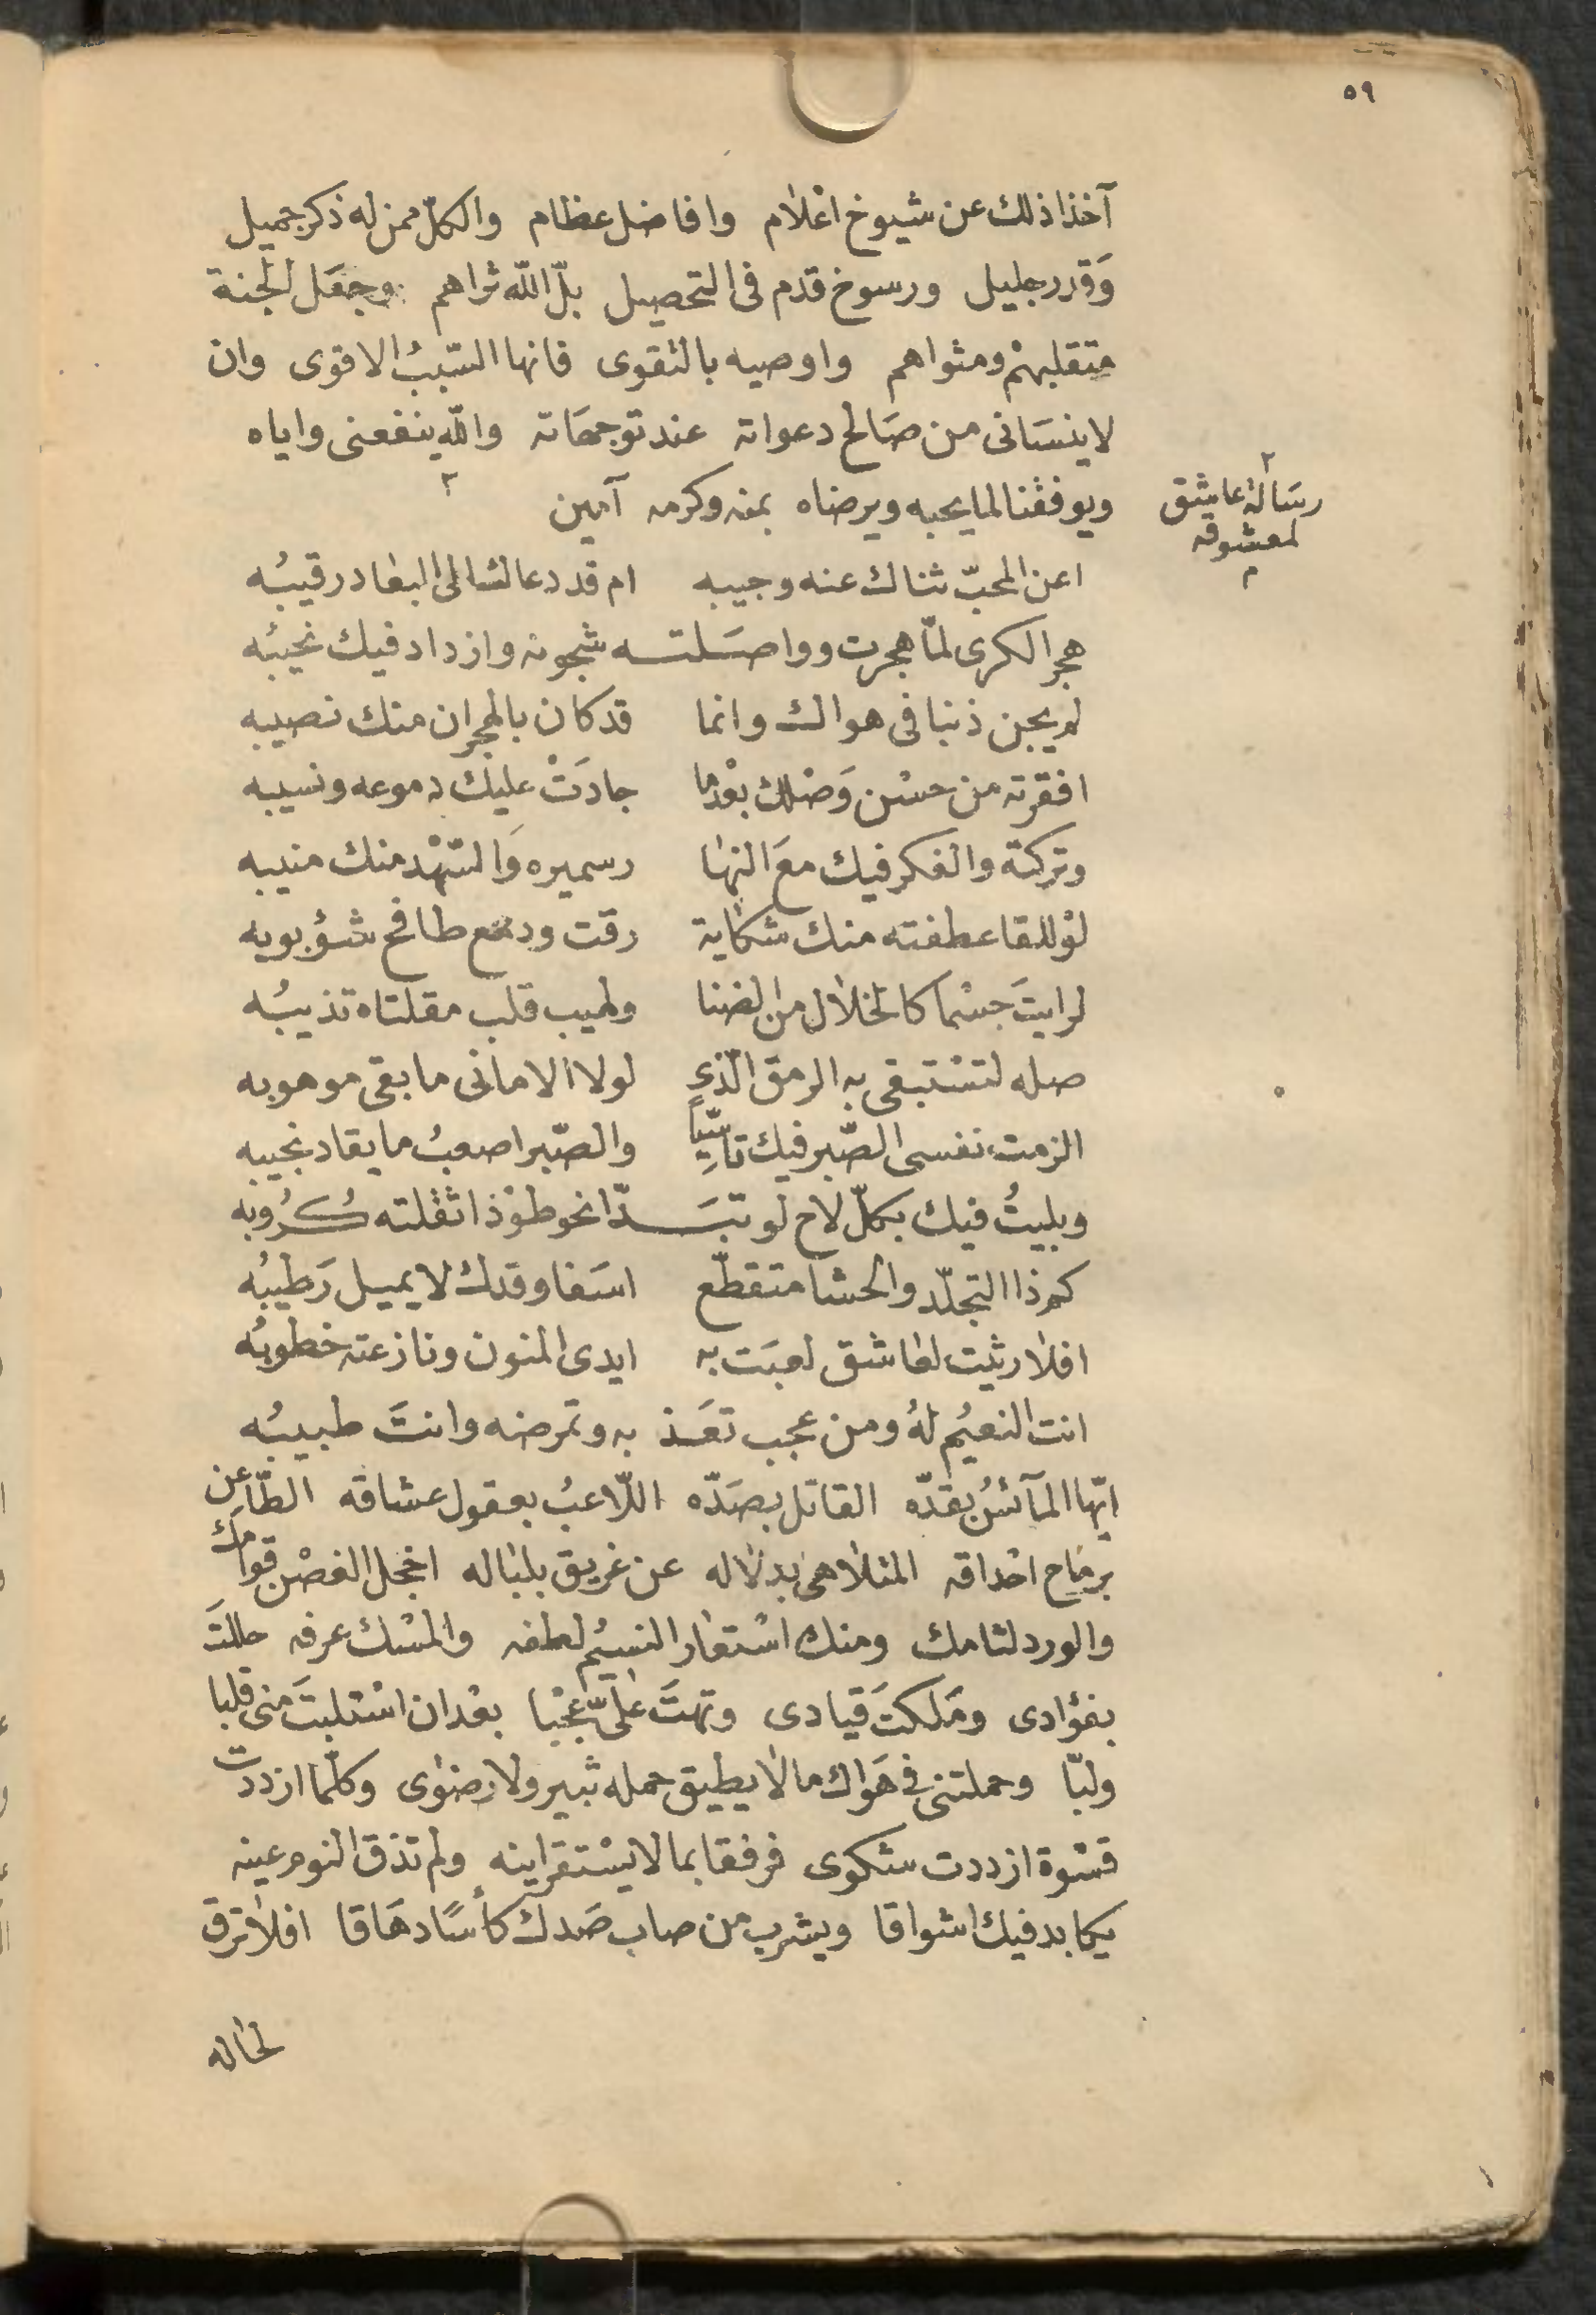 ٥٩
آخذا ذلك عن شيوخ اعلام وافاضل عظام والكل ممن له ذكر جميل
وَقدر جليل ورسوخ قدم فى التحصيل بلّ الله ثراهم وجعَل الجنة
متقلبهمْ ومثواهم واوصيه بالتقوى فانها السّببُ الاقوى وان
لا ينسَانى من صَالح دعواته عند توجهَاته والله ينفعنى واياه
ويوفقنا لما يحبه ويرضاه بمنه وكرمه آمين
رسَالة عاشق
لمعشوقه
اعن المحبّ ثناك عنه وجيبه ام قد دعاك الى البعاد رقيبُه
هجر الكرى لمّا هجرت وواصَلته شجونه وازداد فيك نحيبُه
لم يجن ذنبا فى هواك وانما قد كان بالهجران منك نصيبه
افقرته من حسْن وَصْلك بعْدما جادَتْ عليك دموعه ونسيبه
وتركته والفكر فيك معَ النها رسميره وَالسّهْد منك منيبه
لوْ للقا عطفته منك شكاية رقت ودمع طافح شؤبوبه
لرايتَ جسْما كالخلال من الضنا ولهيب قلب مقلتاه تذيبُه
صله لتسْتبقى به الرمق الّذى لولا الامانى ما بقى موهوبه
الزمت نفسى الصّبر فيك تاسّياً والصّبر اصعبُ ما يقاد نجيبه
وبليتُ فيك بكلّ لاح لو تبَدّا نحو طوْد اثقلته كُرُوبه
كم ذا التجلّد والحشا متقطّع اسَفا وقدك لا يميل رَطيبُه
افلا رثيت لعاشق لعبَت به ايدى المنون ونازعته خطوبُه
انت النعيُم لهُ ومن عجب تعَذ به وتمرضه وانتَ طبيبُه
ايّها المآئسُ بقدّه القاتل بصَدّه اللّاعبُ بعقول عشاقه الطّاعن
برمَاح احْداقه المتلاهى بدلاله عن غريق بلباله اخجل الغصْن قوامك
والورد لثامك ومنك اسْتعار النسيُم لطفه والمسْك عرفه حللتَ
بفؤادى ومَلكتَ قيادى وتهتَ علىّ عجْبا بعْد ان اسْتلبتَ منى قلبا
ولبّا وحملتنى فى هَواك ما لا يطيق حمله ثبير ولا رضوى وكلّما ازددت
قسْوة ازددت شكوى فرفقا بما لا يسْتقر اينه ولم تذق النوم عينه
يكابد فيك اشواقا ويشرب من صاب صَدك كأسًا دهَاقا افلا ترق
لحاله